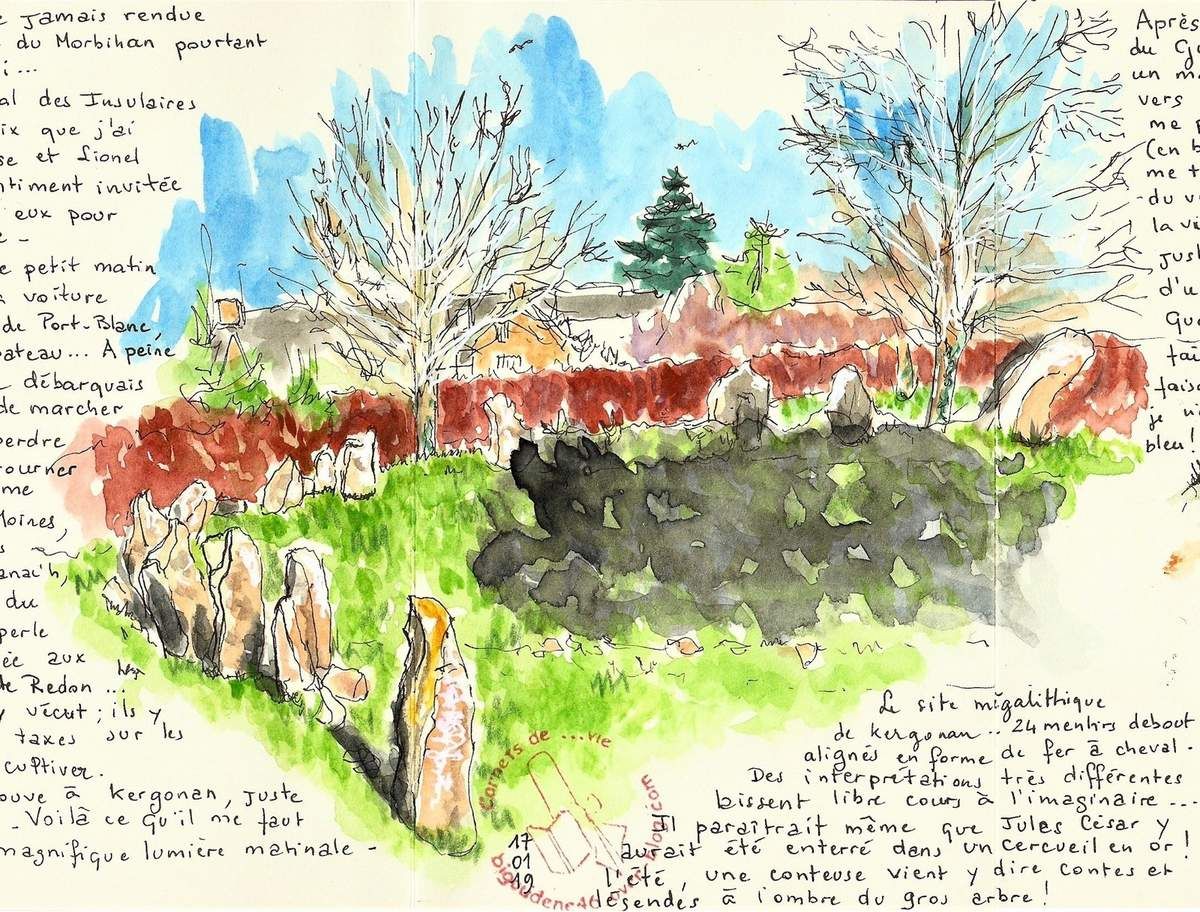 jamais rendue
du Morbihan pourtant
i...
al des Insulaires
ix que j'ai
se et Lionel
ntiment invitée
eux pour
e -
e petit matin
voiture
de Port-Blanc,
bateau... A peine
débarquais
de marcher
perdre
tourner
me
Moines,
s
anac'h,
du
perle
ée aux
de Redon ...
y vécut ; ils y
taxes sur les
cultiver.
ouve à Kergonan, juste
- Voilà ce qu'il me faut
magnifique lumière matinale -
Après
du G
un ma
vers
me p
(en b
me t
du v
la v
just
d'u
Qu
fai
faiss
je n
bleu!
Le site mégalithique
de kergonan .. 24 menhirs debout
alignés en forme de fer à cheval -
Des interprétations très différentes
laissent libre cours à l'imaginaire ...
Il paraîtrait même que Jules César y
aurait été enterré dans un cercueil en or !
l'été, une conteuse vient y dire contes et
désendés à l'ombre du gros arbre !
Carnets de ...vie
17
01
19